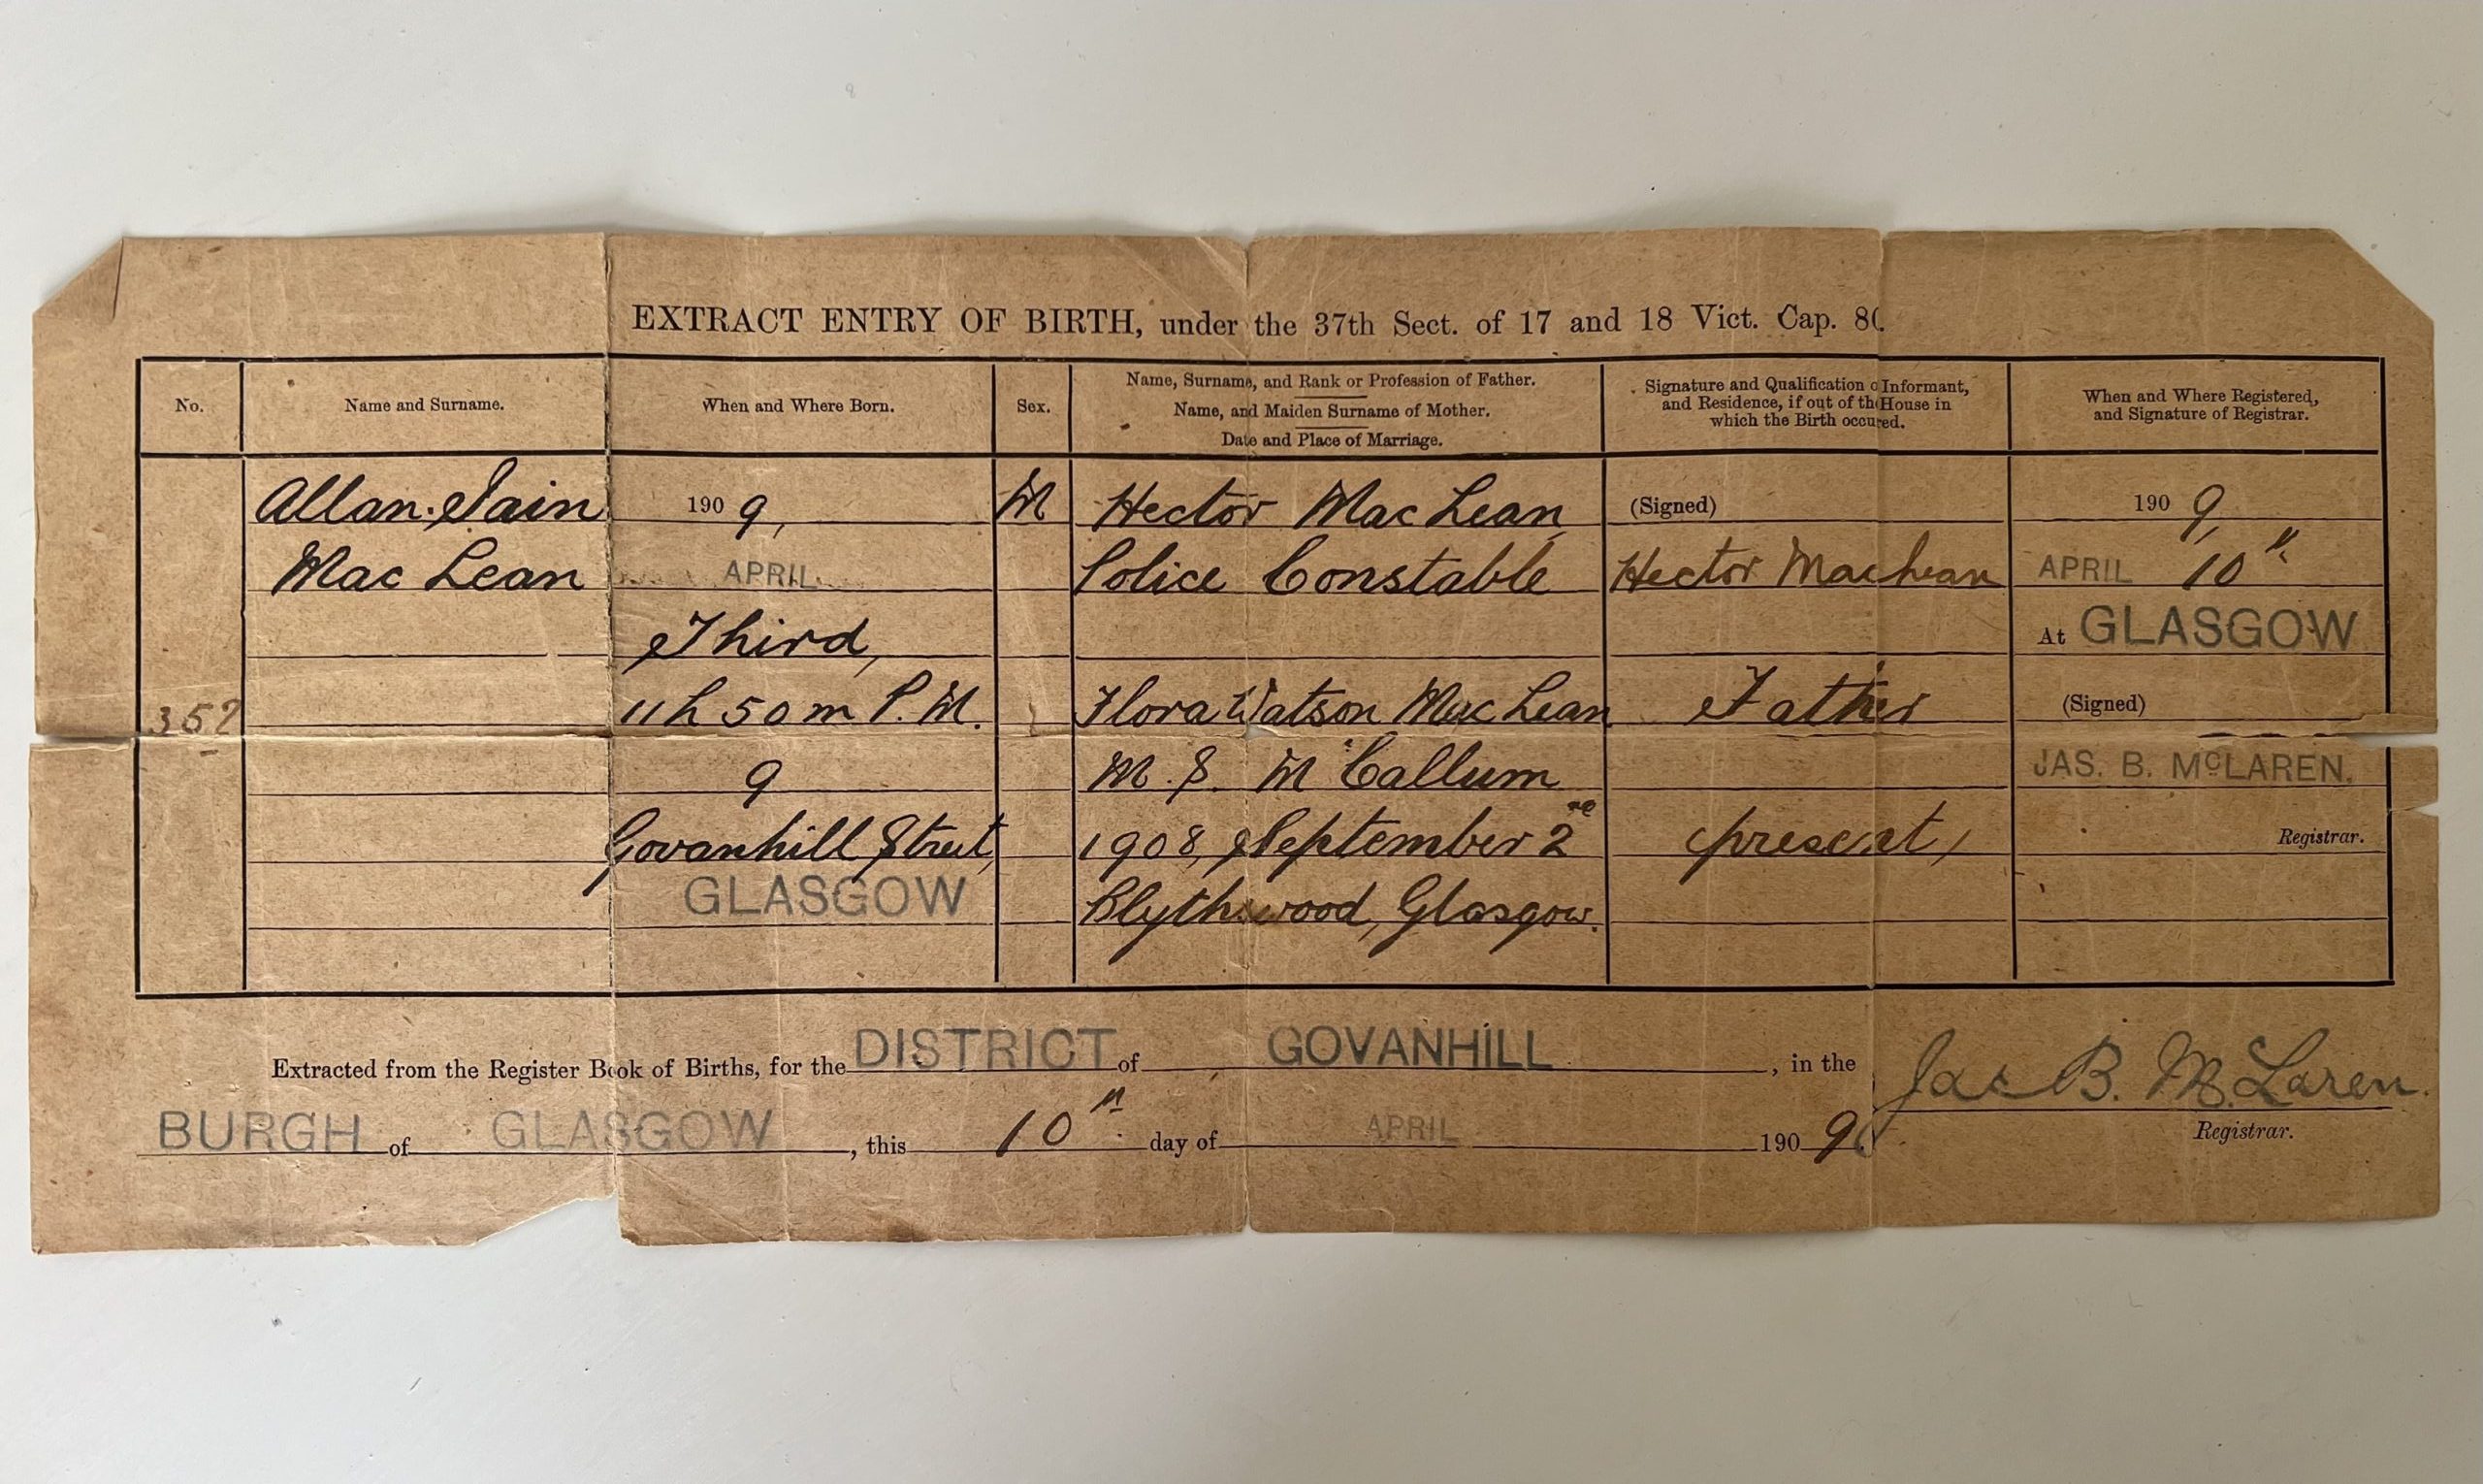 EXTRACT ENTRY OF BIRTH, under the 37th Sect. of 17 and 18 Vict. Cap. 80.
No.
Name and Surname.
When and Where Born.
Sex.
Name, Surname, and Rank or Profession of Father.
Name, and Maiden Surname of Mother.
Date and Place of Marriage.
Signature and Qualification of Informant,
and Residence, if out of the House in
which the Birth occured.
When and Where Registered,
and Signature of Registrar.
357
Allan Iain
Mac Lean
1909,
APRIL
Third,
11h 50m P.M.
9
Govanhill Street,
GLASGOW
M
Hector Mac Lean
Police Constable
Flora Watson Mac Lean
M.S. McCallum
1908, September 2nd
Blythswood, Glasgow.
(Signed)
Hector MacLean
Father
(present)
1909,
APRIL 10th
At GLASGOW
(Signed)
JAS. B. McLAREN.
Registrar.
Extracted from the Register Book of Births, for the DISTRICT of GOVANHILL, in the
BURGH of GLASGOW, this 10th day of APRIL 1909.
Jas B. McLaren.
Registrar.